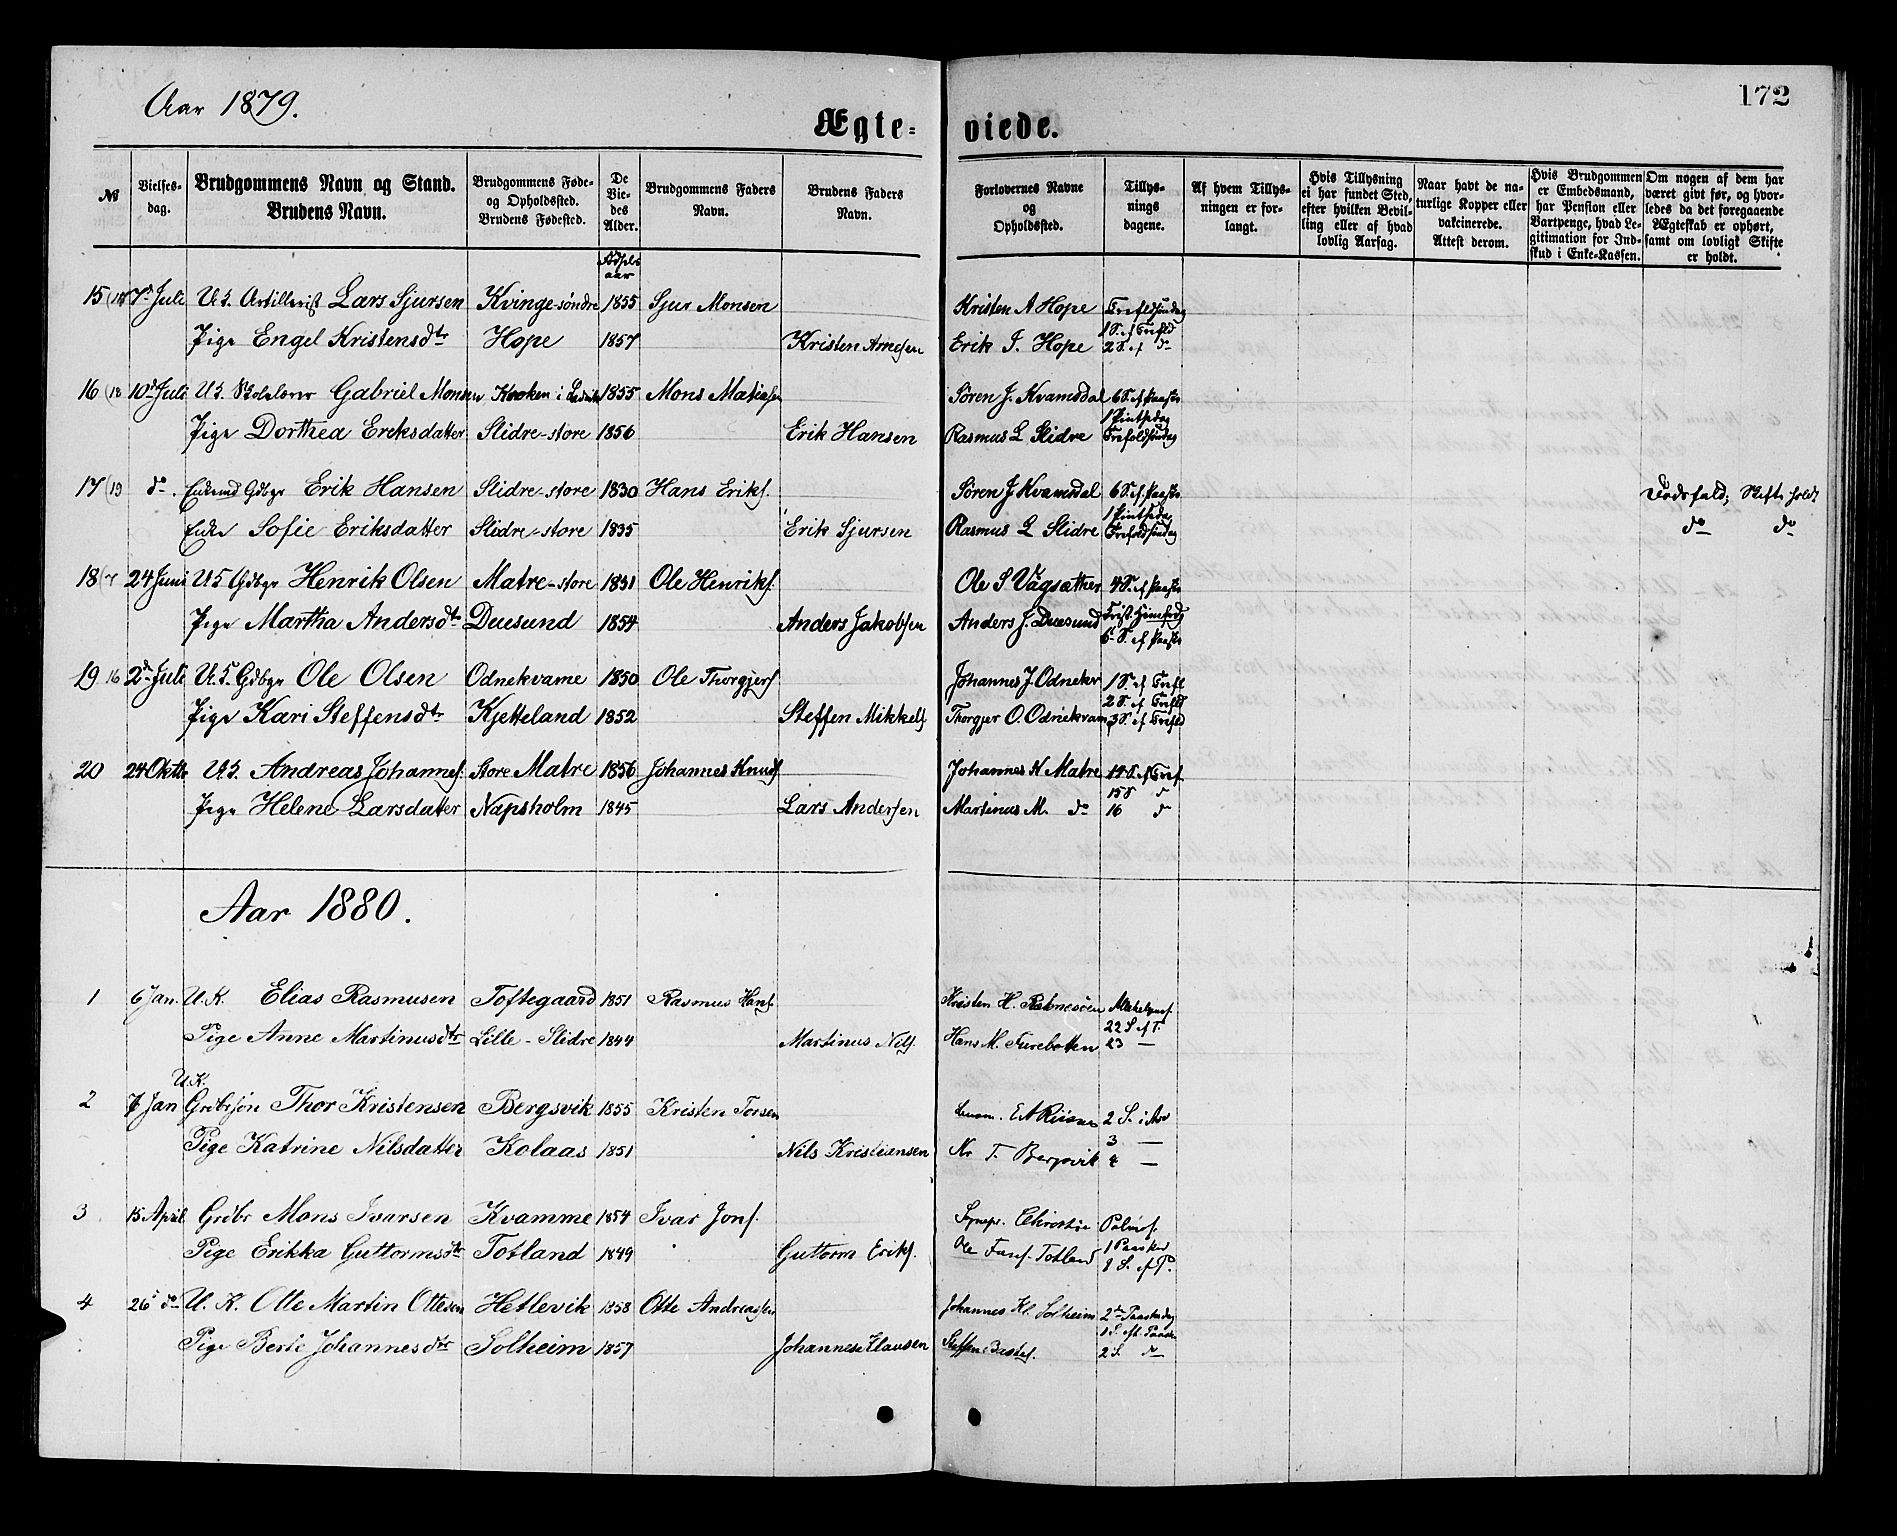 Aar 1879.
172
Ægte- viede.
№
Vielses-dag.
Brudgommens Navn og Stand. Brudens Navn.
Brudgommens Føde- og Opholdssted. Brudens Fødested.
De Viedes Alder.
Brudgommens Faders Navn.
Brudens Faders Navn.
Forlovernes Navne og Opholdssted.
Tillysnings dagene.
Af hvem Tillysningen er forlangt.
Hvis Tillysning ei har fundet Sted, efter hvilken Bevilling eller af hvad lovlig Aarsag.
Naar havt de naturlige Kopper eller vakcinerede. Attest derom.
Hvis Brudgommen er Embedsmand, har Pension eller Vartpenge, hvad Legitimation for Indskud i Enke-Kassen.
Om nogen af dem har været givt før, og hvorledes da det foregaaende Ægteskab er ophørt, samt om lovligt Skifte er holdt.
Fødsels aar
15 7d Juli U.K. Artillerist Lars Sjursen Kvinge-søndre 1855 Sjur Monsen Kristen A Hope Trefoldsøndag
Pige Engel Kristensdtr Hope 1857 Kristen Arnesen Erik I. Hope 1 S. ef Trefld 2 S. ef do
16 (18 10d Juli U.K. Skolelærer Gabriel Monsen Kroken i 1855 Mons Matiasen Søren J. Kvamsdal 6 S. ef. Paaske
Pige Dorthea Eriksdatter Slidre-store 1856 Erik Hansen Rasmus L Slidre 1 Pintsedag Trefoldsøndag
17 (19 do. Enkemd Gdbgr Erik Hansen Slidre-store 1830 Hans Eriks. Søren J Kvamsdal 6 S. ef. Paaske Dødsfald; Skifte holdt
Enke Sofie Eriksdatter Slidre-store 1835 Erik Sjursen Rasmus L Slidre 1 Pintsedag Trefoldsøndag do do
18 24 Juni U.K. Gdbgr Henrik Olsen Matre-store 1851 Ole Henriks. Ole S Vågsæther 4 S. ef Paaske
Pige Martha Andersdtr Duesund 1854 Anders Jakobsen Anders J. Duesund Krist. Himmelfd 6 S. ef Paaske
19 16 2d Juli U.K. Gdbgr Ole Olsen Odnekvame 1850 Ole Thorgjers Johannes J Odnekv 1 S. ef Trefl
Pige Kari Steffensdtr Kjetteland 1852 Steffen Mikkels Thorgjer O. Odnekvam 2 S. ef Trefld 3 S. ef Trefld
20 24 Oktbr U.K. Andreas Johannes. Store Matre 1856 Johannes Knuds. Johannes K Matre 14 S. ef Tref.
Pige Helene Larsdatter Napsholm 1845 Lars Andersen Martinus M. do 15 S do 16 do
Aar 1880.
1 6 Jan. U.K. Elias Rasmusen Toftegaard 1851 Rasmus Hans. Kristen H.
Pige Anne Martinusdtr Lille-Slidre 1844 Martinus Nils. Hans M. Furebotten 22 S. ef T. 23 —
2 7 Jan U.K. Grdbrsøn Thor Kristensen Bergsvik 1855 Kristen Torsen Lensm. 2 S. i Adv
Pige Katrine Nilsdatter Kolaas 1851 Nils Kristensen Kr T. Bergsvik 3 — 4 —
3 15 April Grdbr Mons Ivarsen Kvamme 1854 Ivar Jons. Palmes.
Pige Erikka Guttormsdtr Totland 1849 Guttorm Eriks. Ole Totland 1 Paasked 1 S. ef P.
4 26d do U.K. Otte Martin Ottesen Hetlevik 1858 Otte Andreassen Johannes Kl. Solheim 2den Paaskedag
Pige Berte Johannesdtr Solheim 1857 Johannes Klausen Steffen 1 S. eft. Paaske 2 S. do